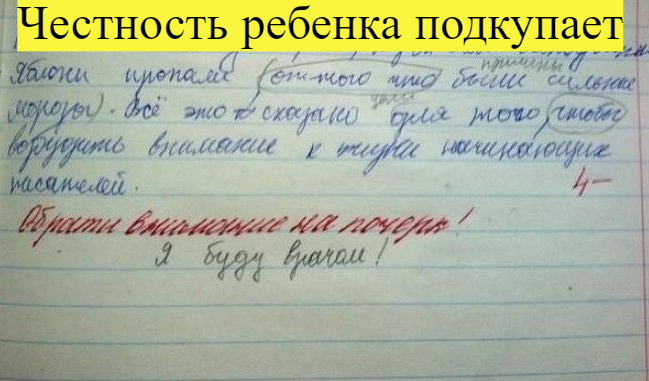 Честность ребенка подкупает
причины
Яблони пропали (оттого что были сильные
цели
морозы). Всё это сказано для того чтобы
возбудить внимание к жизни начинающих
писателей.
4-
Обрати внимание на почерк!
Я буду врачом!